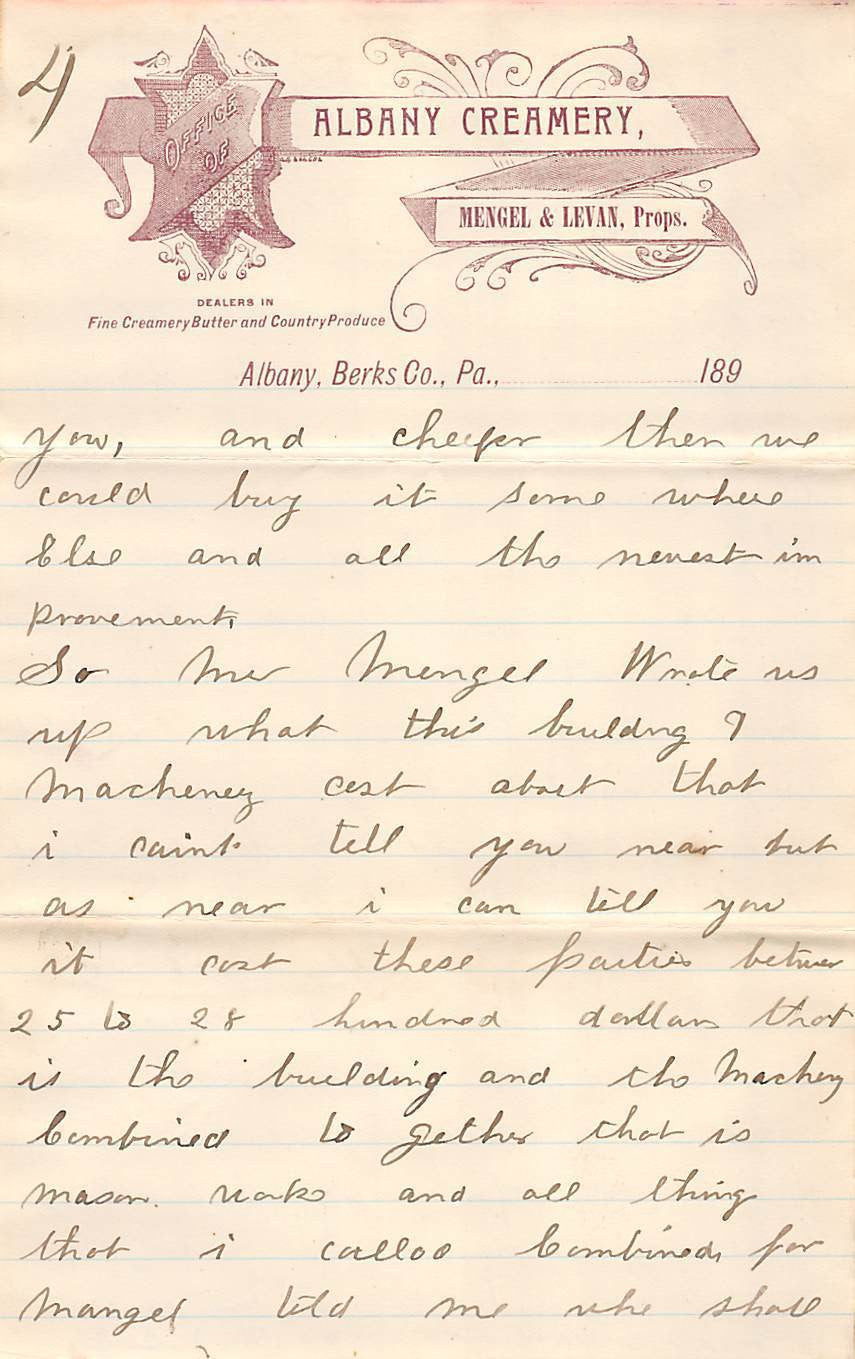 4
OFFICE
OF
ALBANY CREAMERY,
MENGEL & LEVAN, Props.
DEALERS IN
Fine Creamery Butter and Country Produce
Albany, Berks Co., Pa., 189
you, and cheeper then we
could buy it some where
Else and all the newest im
provement.
So Mr Mengel Wrote us
up what this buildng &
Macheney cost about that
i caint tell you near but
as near i can tell you
it cost these parties between
25 to 28 hundred dollars that
is the building and the Machery
Combined to gether that is
mason works and all thing
that i called Combined, for
Mangel told me whe shall